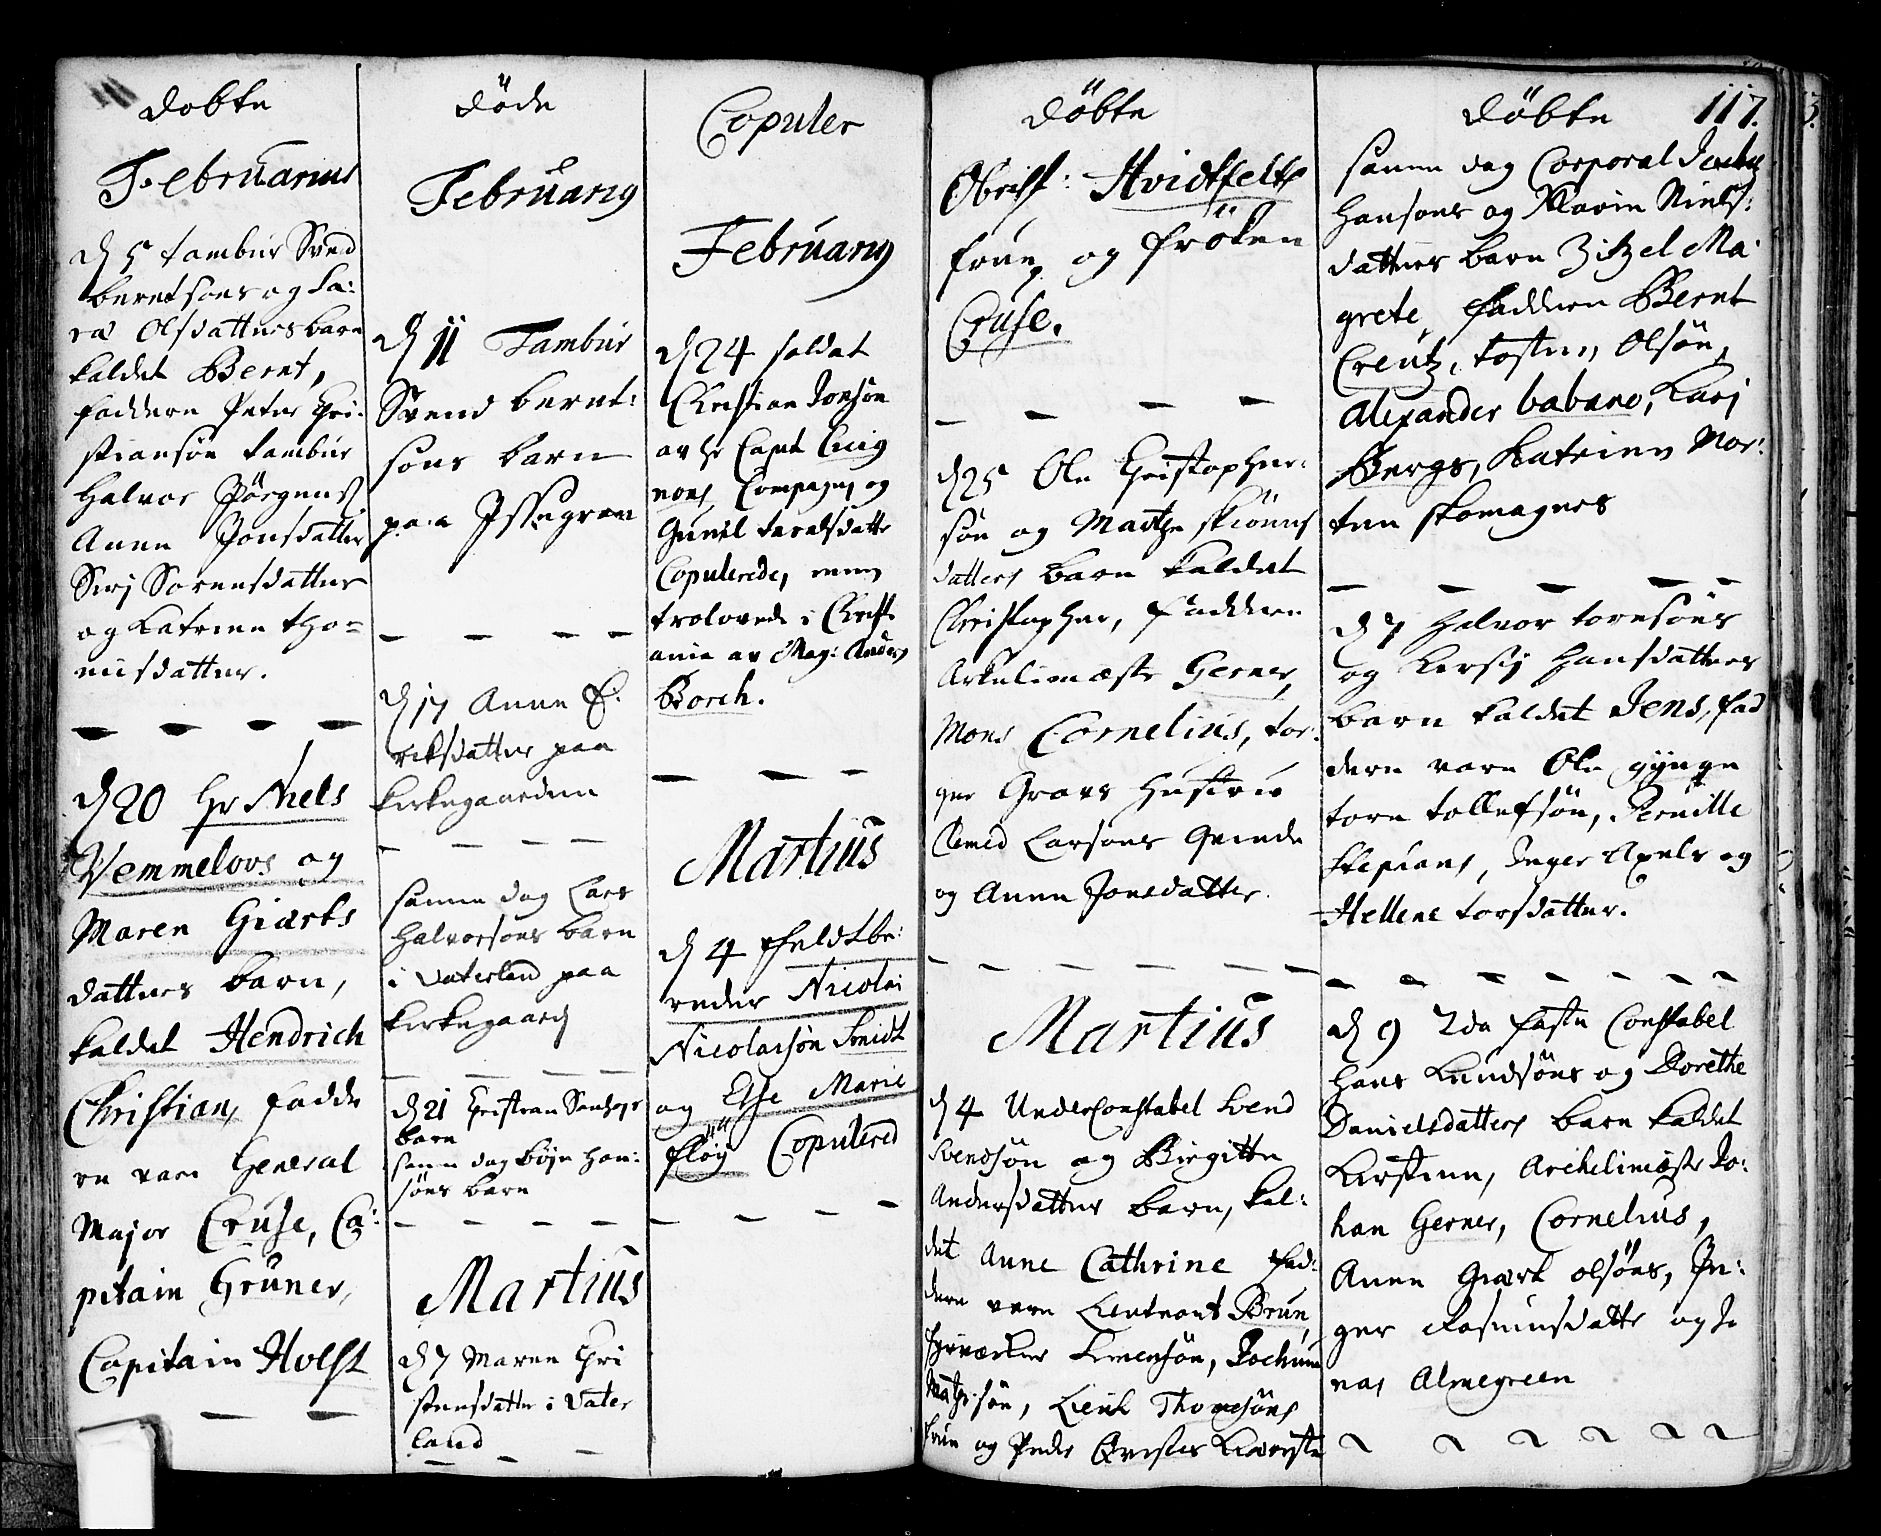 Dobte
Februarius
D 5 tambur Svend
berntsons og Sa:
ra Olsdatters barn
kaldet Bernt,
faddere Peter Chri
stiansøn tambur
Halvor Jörgens
Anne Jonsdatter
Siri Sorensdatter
og Katrine tho=
misdatter.
D 20 Hr Niels
Vemmelovs og
Maren Giærts
datters barn,
kaldet Hendrich
Christian, fadde
re vare General
Major Cruse, Ca:
pitain Grüner,
Capitain Holst
Döde
Februarij
D 11 Tambur
Svend bernt:
sons barn
paa Issegran
D 17 Anne E.
richsdatter paa
kirkegaarden
samme dag Lars
Halvorsons barn
i Vaterland paa
kirkegaard
D 21 Christian
barn
samme dag Böje Han:
söns barn
Martius
D 7 Maren Chri
stensdatter i Vater
land
Copuler
Februarij
D 24 soldat
Christian Jonsön
av Hr Capt
Compagni og
Gunil
Copulerede,
trolovede i Christi
ania av Mag: Anders
Borch.
Martius
D 4 Feldtbe:
reder Nicolai
Nicolaisön Smidt
og Else Marie
Flöÿ Copulered
Döbte
Obrist: Hvidtfelts
frue og fröken
Cruse.
D 25 Ole Christopher:
sön og Martze
datters barn kaldet
Christopher, faddere
Arkelimæster Gerner,
Mons Cornelius, tor:
ger Gravs Hustroe
Amed Larsons Qvinde
og Anne Jonsdatter.
Martius
D 4 UnderConstabel Svend
Svendsön og Birgitte
Andersdatters barn, kal:
det Anne Cathrine fad:
dere vare Lieutnant Brun,
fyrværker Simensön, Jochum
Matz:sön, Lieut Thomesöns
frue og Peder Qvistes Kiæreste
Döbte 117.
samme dag Corporal
Hansons og Karin Niels:
datters barn Zitzel Ma
grete, faddere Bernt
Creutz, Tosten Olsön,
Alexander babano, Kari
Bergs, Katrine Mor:
ten skomagers
D 7 Halvor toresöns
og Kirsti Hansdatters
barn kaldet Jens, fad
dere vare Ole gynge
tore tollefsön, Pernille
Stephans, Inger Axels og
Hellene torsdatter.
D 9 2da faste Constabel
Hans Knudsöns og Dorethe
Danielsdatters barn kaldet
Kirstine, Archelimæster Jo:
han Gerner, Cornelius,
Anne Giert olsöns, In:
ger Rasmusdatter og Jo
nas Almegreen